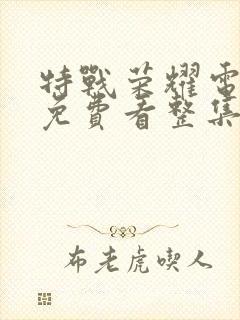 特戰荣耀電
免費看整集
布老虎喫人